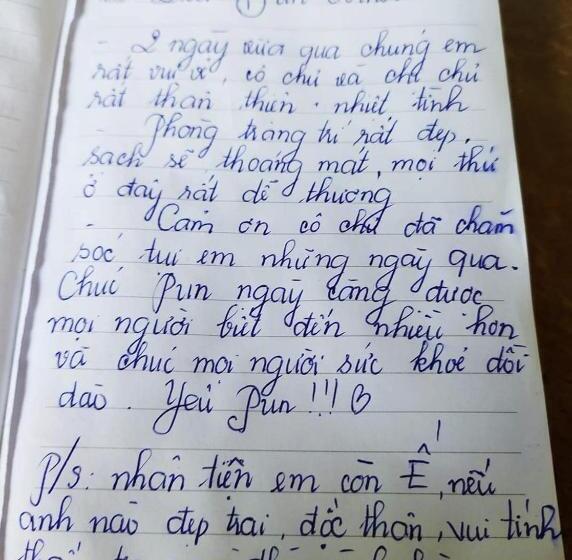 - 2 ngày vừa qua chúng em
rất vui vẻ, cô chú và chủ chú
rất thân thiện. nhiệt tình
- Phòng trang trí rất đẹp,
sạch sẽ thoáng mát, mọi thứ
ở đây rất dễ thương
- Cảm ơn cô chú đã chăm
sóc tụi em những ngày qua.
Chúc Pun ngày càng được
mọi người biết đến nhiều hơn
và chúc mọi người sức khoẻ dồi
dào. Yêu Pun !!!
P/s: nhân tiện em còn Ế, nếu
anh nào đẹp trai, độc thân, vui tính